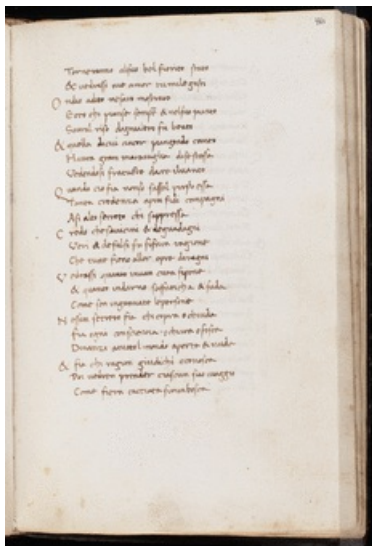 Torneranno al suo bel fiorito stato
Et vedrassi oue amor tu mi legasti
Ondio a dito ne saro mostrato
Ecco chi pianse sempre & nel suo pianto
Soura l riso dogni altro fu beato
& quella di cui ancor piangendo canto
Haura gran marauiglia di se stessa
Vedendosi fra tutte dare il uanto
Quando cio fia nol so sassel propio essa
Tanta credenza a piu fidi compagni
A si alto secreto chi sappressa
Credo che sauicini & de guadagni
Veri & de falsi si fara ragione
Che tutte fieno allor opre daragni
Vedrassi quanto in uan cura si pone
& quanto indarno saffaticha & suda
Come son ingannate le persone
Nessun secreto fia chi copra o chiuda
Fia ogni conscientia o chiara o fosca
Dinanzi a tutto l mondo aperta & nuda
& fia chi ragion giudichi & conosca
Poi uedren prender ciascun suo uiaggio
Come fiera cacciata si rimbosca